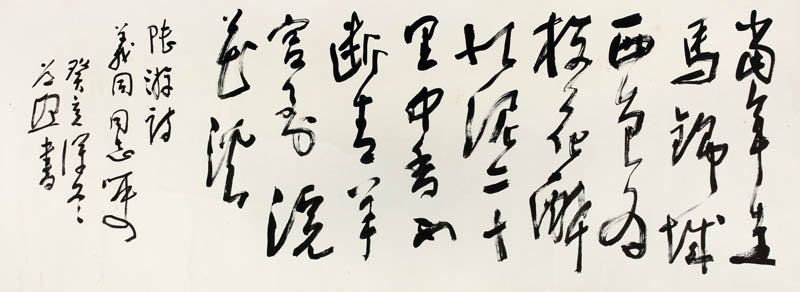 當年走
馬錦城
西曾为
梅花醉
似泥二十
里中香不
斷青羊
宮到浣
花溪
陆游诗
義同同志
癸亥深冬
書